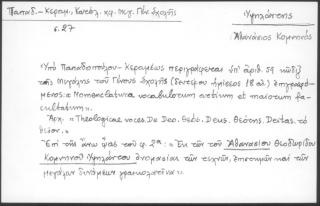 Παπαδ.-Κεραμ., Κατάλ. χφ. Μεγ. Γέν. Σχολῆς
Ὑψηλάντης
σ. 27
Ἀθανάσιος Κομνηνός
Ὑπὸ Παπαδοπούλου-Κεραμέως περιγράφεται ὑπ' ἀριθ. 59 κῶδιξ
τῆς Μεγάλης τοῦ Γένους Σχολῆς (δευτέρου ἡμίσεος 18 αἰ.) ἐπιγραφό-
μενος: «Nomenclatura vocabulorum artium et maiorum fa-
cultatum».
Ἀρχ. «Theologicae voces. De Deo. Θεός. Deus. Θεότης. Deitas. τὸ
θεῖον.»
Ἐπὶ τῆς ἄνω ᾤας τοῦ φ. 2α: «Ἐκ τῶν τοῦ Ἀθανασίου Θεοδωρίδου
Κομνηνοῦ Ὑψηλάντου ὀνομασίαι τῶν τεχνῶν, ἐπιστημῶν καὶ τῶν
μεγάλων δυνάμεων γραικολατῖναι».